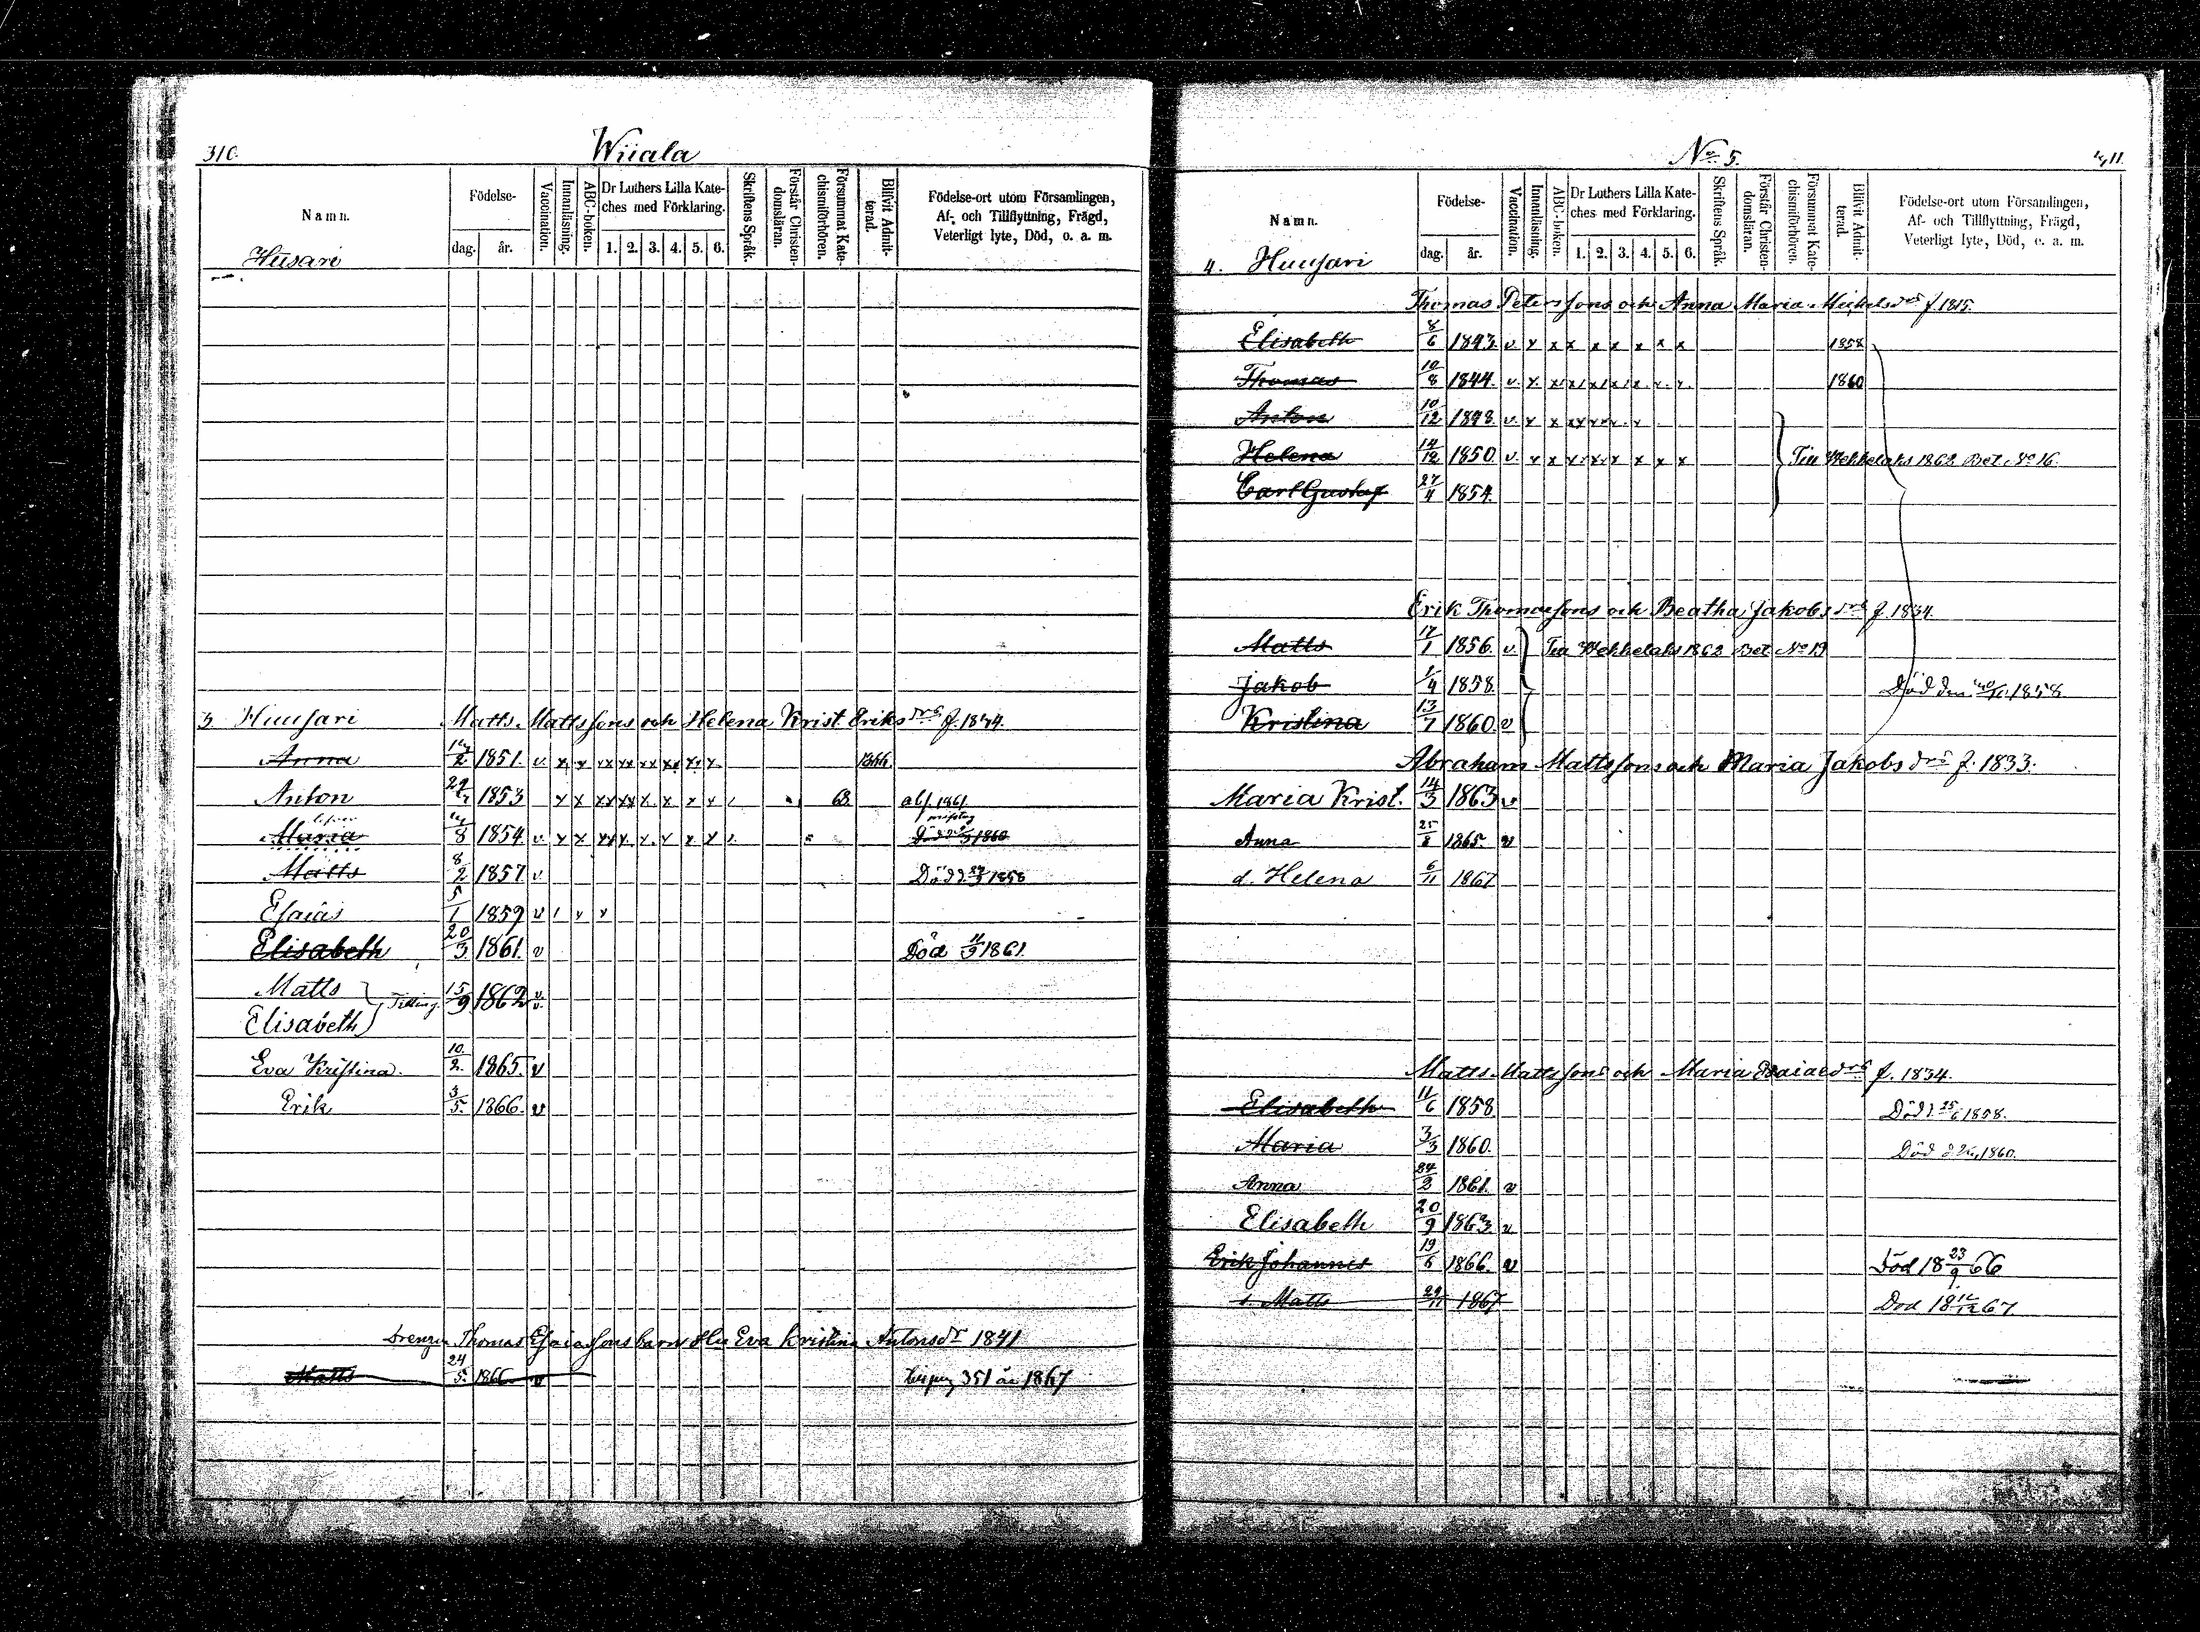 310.
Wiiala
Namn.
Födelse-
dag. år.
Vaccination.
Innanläsning.
ABC-boken.
Dr Luthers Lilla Kate-
ches med Förklaring.
1. 2. 3. 4. 5. 6.
Skriftens Språk.
Förstår Christen-
domsläran.
Försummat Kate-
chismiförhören.
Blifvit Admit-
terad.
Födelse-ort utom Församlingen,
Af- och Tillflyttning, Frägd,
Veterligt lyte, Död, o. a. m.
Husari
3 Huusari Matts Mattssons och Helena Krist Eriksdrs f. 1834.
Anna 2 1851. v. x x xx xx xx xx xx x 1866
Anton 1853 x x xx xx x. x x x 63. 1861
Maria 8 1854. v. x x xx x. x. x x x 1860
Matts 8/2 1857 v Död 1858
Esaias 5/1 1859 v x x
Elisabeth 20/3 1861. v Död 11/9 1861.
Matts } Tvilling. 15/9 1862 v
Elisabeth v
Eva Kristina. 10/2 1865. v
Erik 3/5 1866. v
Drengen Thomas Esaiassons barn Hu Eva Kristina Antonsdr 1841
Matts 24/5 1866 v 351 år 1867
No. 5.
Namn.
Födelse-
dag. år.
Vaccination.
Innanläsning.
ABC-boken.
Dr Luthers Lilla Kate-
ches med Förklaring.
1. 2. 3. 4. 5. 6.
Skriftens Språk.
Förstår Christen-
domsläran.
Försummat Kate-
chismiförhören.
Blifvit Admit-
terad.
Födelse-ort utom Församlingen,
Af- och Tillflyttning, Frägd,
Veterligt lyte, Död, o. a. m.
4. Huusari
Thomas Peterssons och Anna Maria Mickelsdrs f. 1815.
Elisabeth 8/6 1843. v. x x x x x x x x 1858
Thomas 10/8 1844. v. x. x x x x x x x 1860
Anton 10/12 1848. v. x x xx x x. x
Helena 14/12 1850. v. x x x x x x x x Till Wehkelaks 1862 Bet. No 16.
Carl Gustaf 27/4 1854.
Erik Thomassons och Beatha Jakobsdrs f. 1834.
Matts 17/1 1856. v. Till Wehkelaks 1862 Bet No 19
Jakob 1/4 1858. Död den 1858
Kristina 13/7 1860. v
Abraham Mattssons och Maria Jakobsdrs f. 1833.
Maria Krist. 14/3 1863 v
Anna 25/8 1865. v
d. Helena 6/11 1867
Matts Mattssons och Maria Esaiaedrs f. 1834.
Elisabeth 11/6 1858 Död d. 25/6 1858.
Maria 3/3 1860. Död d. 1860.
Anna 24/2 1861. v
Elisabeth 20/9 1863. v
Erik Johannes 19/6 1866. v Död 18 23/9 66
s. Matts 29/11 1867 Död 18 12/12 67